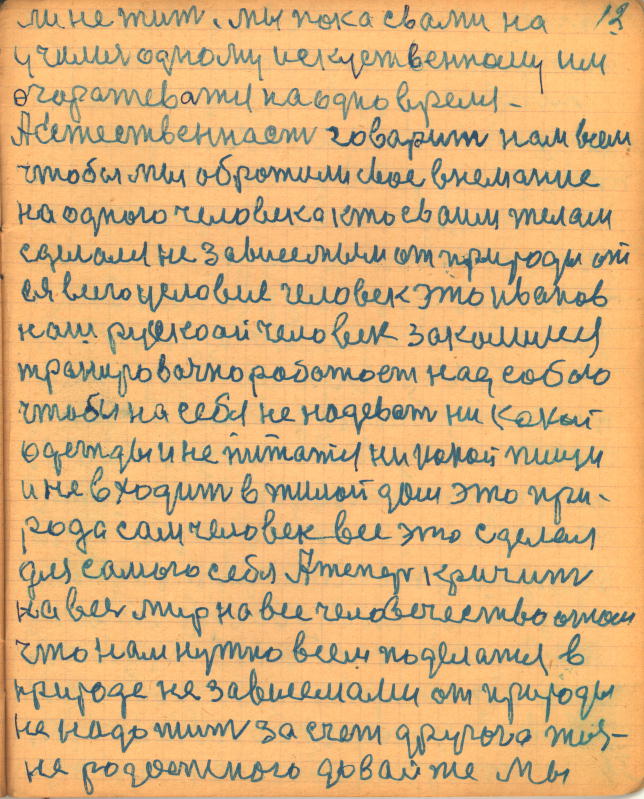 12
ли не жит. мы пока с вами на
училися одному искуственному им
огоражеватся на одно время -
А естественаст говарит нам всем
чтобы мы обротили свое внемание
на одного человека кто сваим телам
сделался не зависемым от природы от
ея всего условия человек это иванов
наш руской человек закалился
транировачно работает над собою
чтобы на себя не надеват ни какой
одежды и не питатся ни какой пищи
и не входит в жилой дом это при-
рода сам человек все это сделал
для самого себя А теперь кричит
на весь мир на все человечество отом
что нам нужно всем поделатся в
природе не зависемами от природы
не надо жит за счет другога жив-
не радостного довай же мы